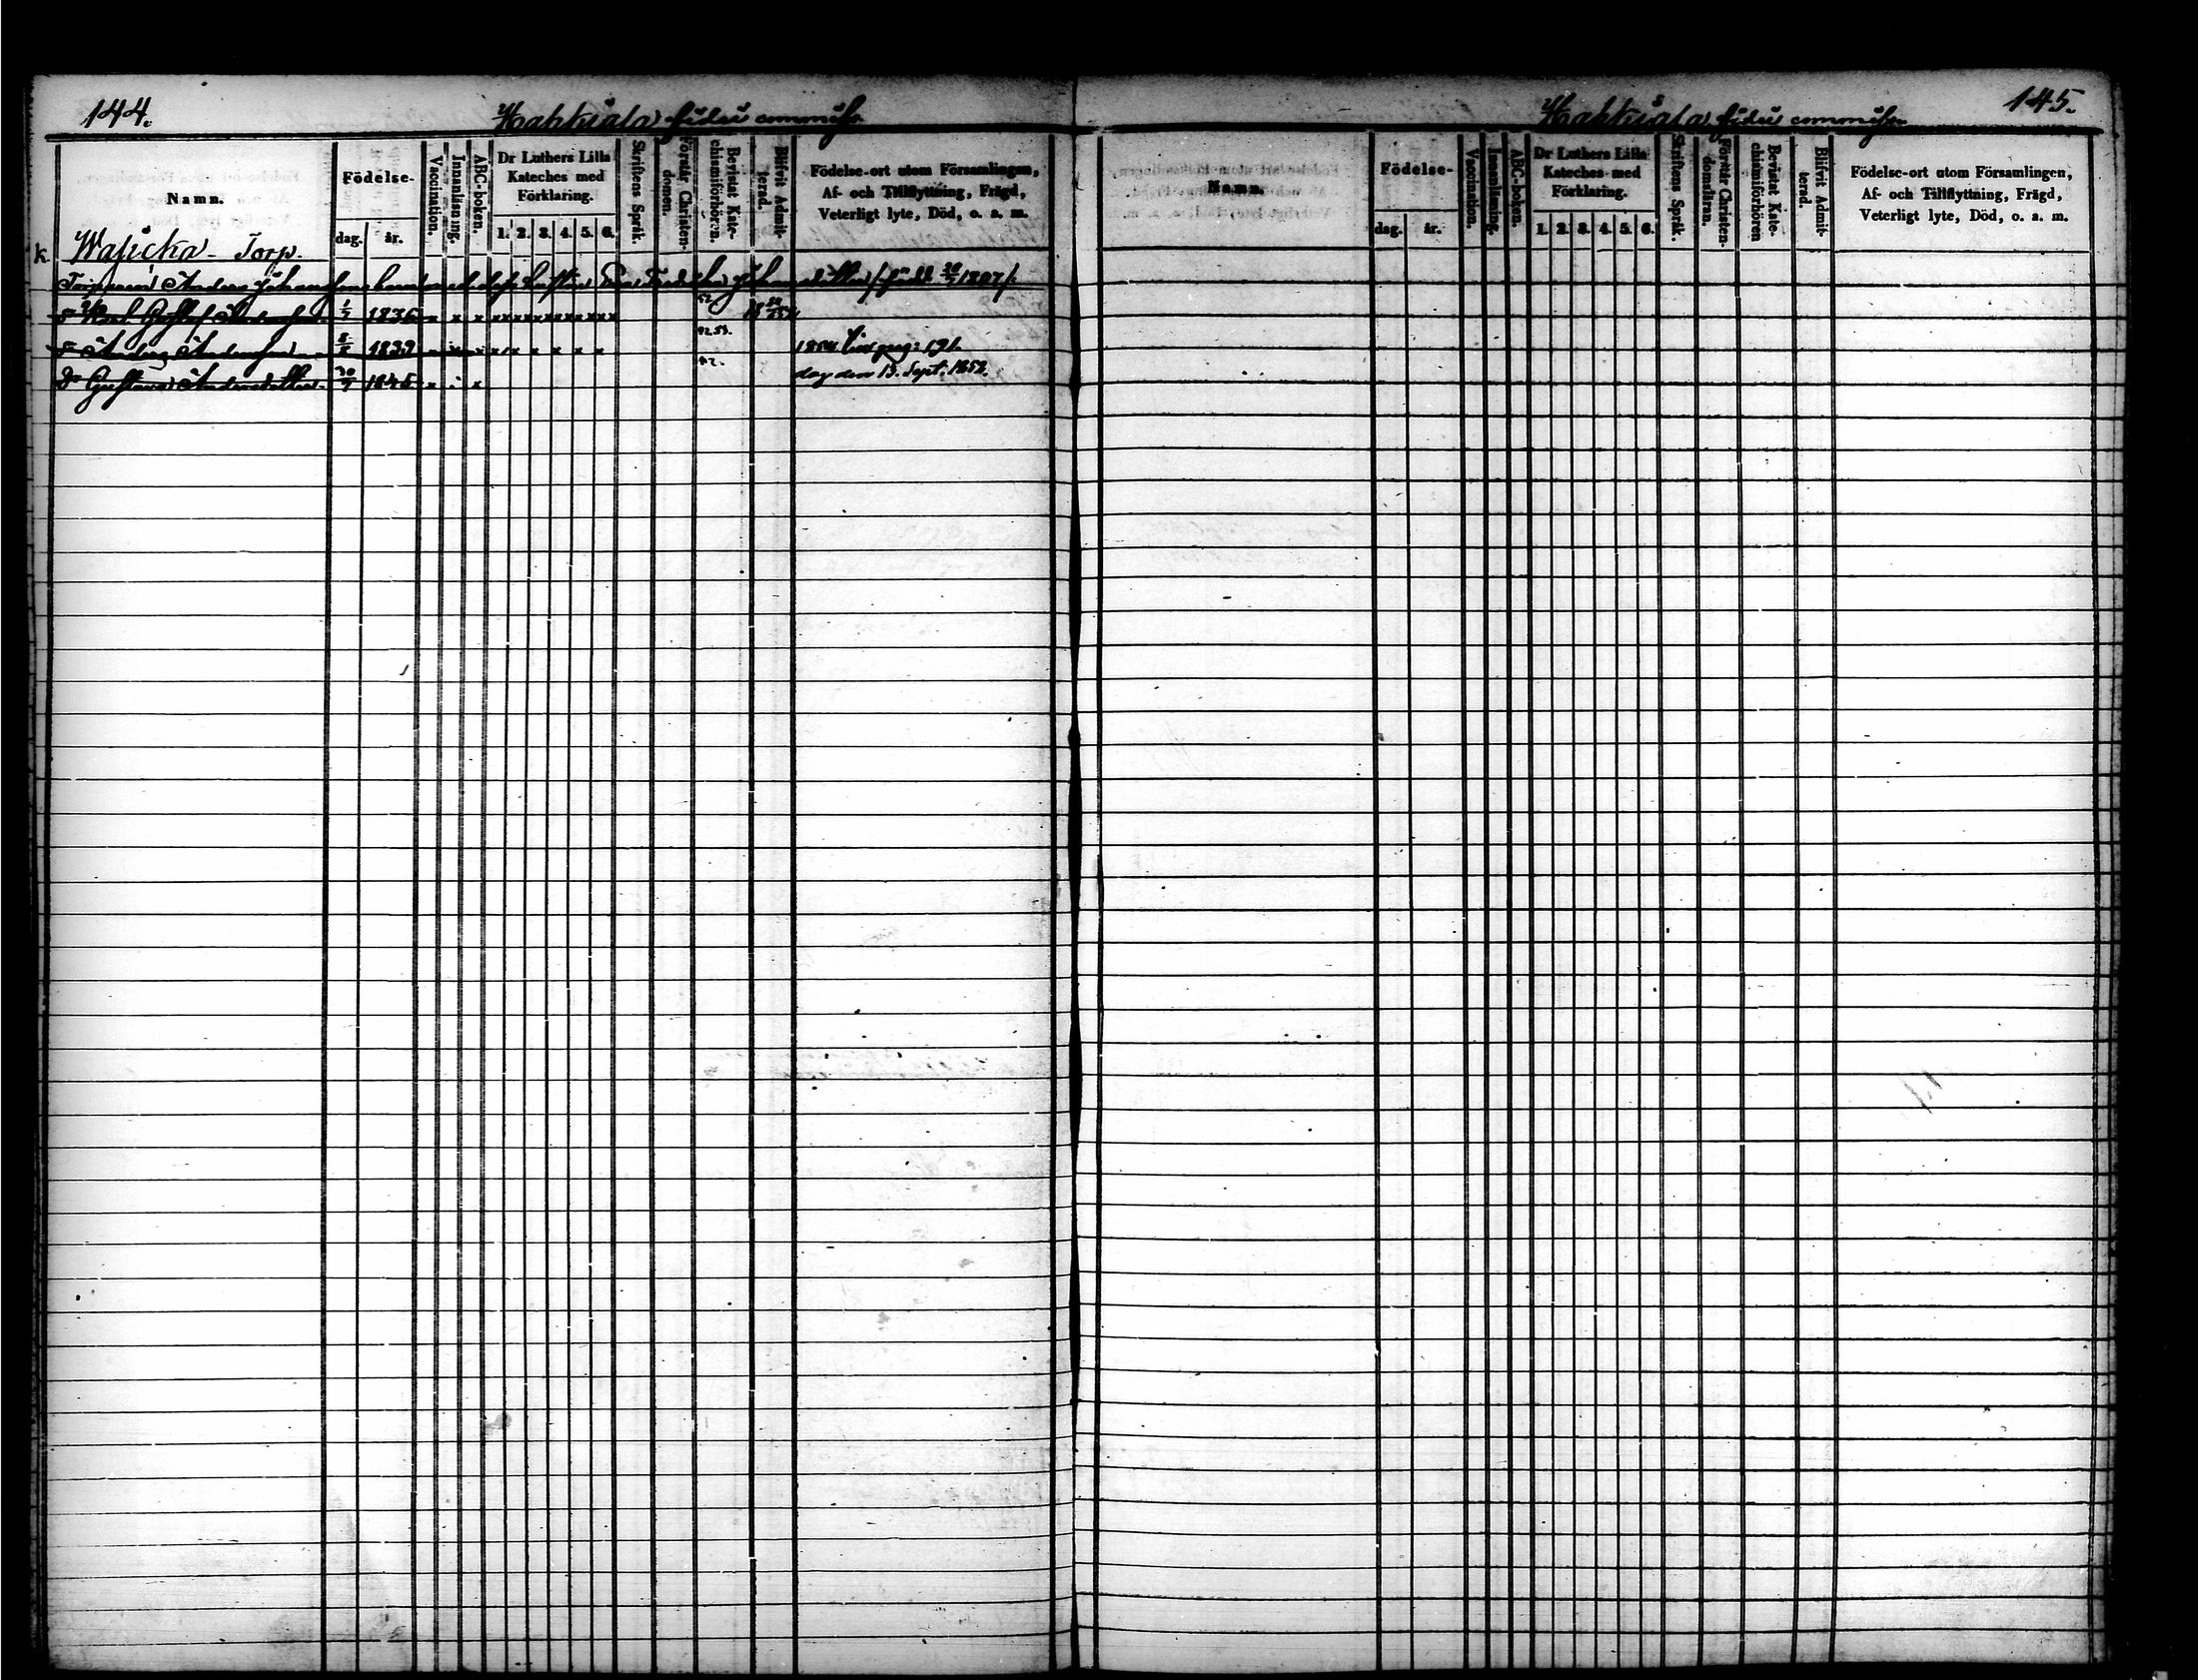 144.
Hakkiala fidei commiss
Namn.
Födelse-
dag.
år.
Vaccination.
Innanläsning.
ABC-boken.
Dr Luthers Lilla Kateches med Förklaring.
1. 2. 3. 4. 5. 6.
Skriftens Språk.
Förstår Christen-
domen.
Bevistat Kate-
chismiförhören.
Blifvit Admit-
terad.
Födelse-ort utom Församlingen,
Af- och Tillflyttning, Frägd,
Veterligt lyte, Död, o. a. m.
k. Wasicka Torp.
Anders Johansson hustru Johansdotter född 1807
Gustaf Andersson 1/7 1836 x x x x x x x x x
s Anders Andersson 8/8 1839 x x x x x x x 52.53. 1854 pag: 191.
Dr Gustava Andersdotter 30/7 1845 x 52. dog den 13. Sept. 1853.
145.
Hakkiala fidei commiss
Namn.
Födelse-
dag.
år.
Vaccination.
Innanläsning.
ABC-boken.
Dr Luthers Lilla
Kateches med
Förklaring.
1. 2. 3. 4. 5. 6.
Skriftens Språk.
Förstår Christen-
domsläran.
Bevistat Kate-
chismiförhören
Blifvit Admit-
terad.
Födelse-ort utom Församlingen,
Af- och Tillflyttning, Frägd,
Veterligt lyte, Död, o. a. m.